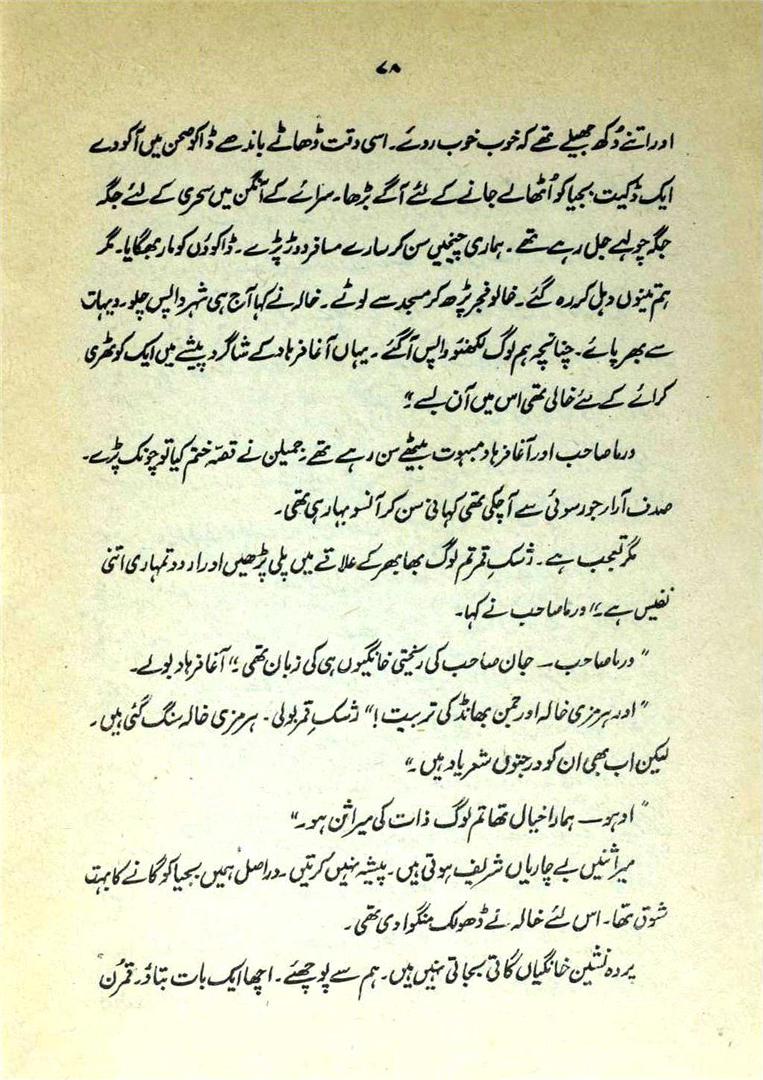 ۷۸
اور اتنے دُکھ جھیلے تھے کہ خوب خوب روئے۔ اسی وقت ڈھاٹے باندھے ڈاکو صحن میں آکودے
ایک ڈکیت بجیا کو اُٹھالے جانے کے لئے آگے بڑھا۔ سرائے کے آنگن میں سحری کے لئے جگہ
جگہ چولہے جل رہے تھے۔ ہماری چیخیں سن کر سارے مسافر دوڑ پڑے۔ ڈاکوؤں کو مار بھگایا۔ مگر
ہم تینوں دہل کر رہ گئے۔ خالو فجر پڑھ کر مسجد سے لوٹے۔ خالہ نے کہا آج ہی شہر واپس چلو۔ دیہات
سے بھر پائے۔ چنانچہ ہم لوگ لکھنؤ واپس آگئے۔ یہاں آغا فرہاد کے شاگرد پیشے میں ایک کوٹھری
کرائے کے لئے خالی تھی اس میں آن بسے۔"
ورما صاحب اور آغا فرہاد مبہوت بیٹھے سن رہے تھے۔ جمیلن نے قصّہ ختم کیا تو چونک پڑے۔
صدف آرا جو رسوئی سے آچکی تھی کہانی سن کر آنسو بہا رہی تھی۔
مگر تعجب ہے۔ رشکِ قمر تم لوگ بھابھر کے علاقے میں پلی پڑھیں اور اردو تمہاری اتنی
نفیس ہے۔" ورما صاحب نے کہا۔
"ورما صاحب — جان صاحب کی ریختی خانگیوں ہی کی زبان تھی۔" آغا فرہاد بولے۔
"اور ہرمزی خالہ اور جمن بھانڈ کی تربیت!" رشکِ قمر بولی۔ ہرمزی خالہ سنگ گئی ہیں۔
لیکن اب بھی ان کو درجنوں شعر یاد ہیں۔"
"اوہو — ہمارا خیال تھا تم لوگ ذات کی میراثن ہو۔"
میراثنیں بے چاریاں شریف ہوتی ہیں۔ پیشہ نہیں کرتیں۔ دراصل ہمیں بجیا کو گانے کا بہت
شوق تھا۔ اس لئے خالہ نے ڈھولک منگوا دی تھی۔
پردہ نشین خانگیاں گاتی بجاتی نہیں ہیں۔ ہم سے پوچھئے۔ اچھا ایک بات بتاؤ۔ قمرُن